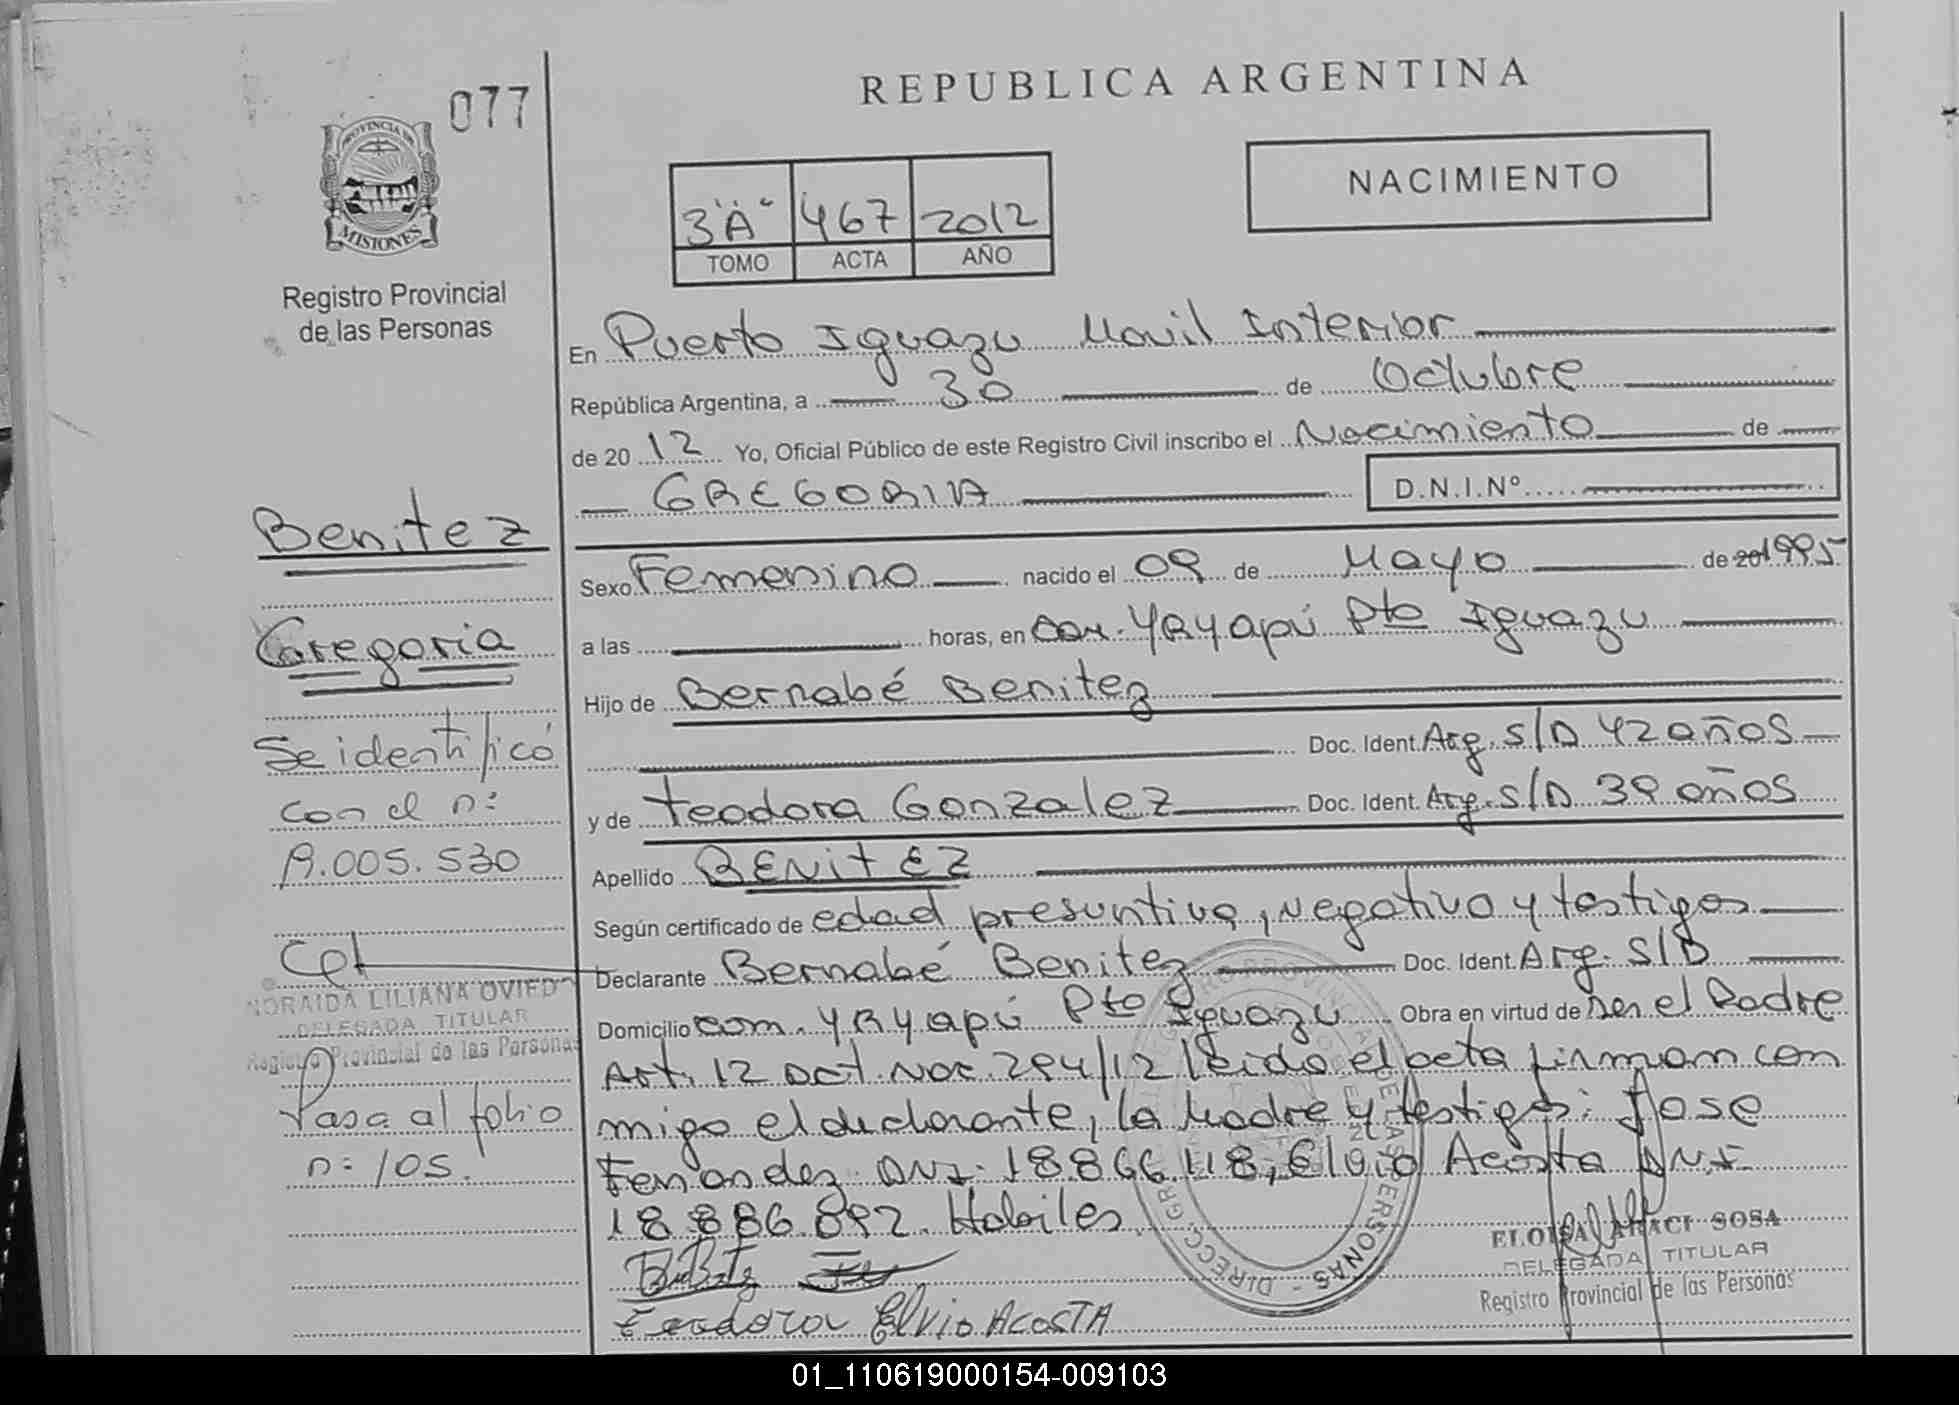 077
PROVINCIA DE
MISIONES
Registro Provincial
de las Personas
REPUBLICA ARGENTINA
NACIMIENTO
3"A" 467 2012
TOMO ACTA AÑO
En Puerto Iguazu Movil Interior
República Argentina, a 30 de Octubre
de 20 12 Yo, Oficial Público de este Registro Civil inscribo el Nacimiento de
GREGORIA D.N.I.Nº
Sexo Femenino nacido el 09 de Mayo de 201995
a las horas, en Com. YRYapú Pto Iguazu
Hijo de Bernabé Benitez
Doc. Ident. Arg. S/D 42 años
y de Teodora Gonzalez Doc. Ident. Arg. S/D 39 años
Apellido BENITEZ
Según certificado de edad presuntiva, negativo y testigos
Declarante Bernabé Benitez Doc. Ident. Arg. S/D
Domicilio Com. YRYapú Pto Iguazu Obra en virtud de ser el Padre
Art. 12 Dct. Nac. 294/12 leido el acta firman con
migo el declarante, la Madre y testigos: Jose
Fernandez DNI. 18.866.118, Elvio Acosta DNI
18.886.892. Habiles
Teodora Elvio ACOSTA
ELOISA ARACI SOSA
DELEGADA TITULAR
Registro Provincial de las Personas
Benitez
Gregoria
Se identificó
con el n:
A.005.530
NORAIDA LILIANA OVIEDO
DELEGADA TITULAR
Registro Provincial de las Personas
Pasa al folio
n: 105.
01_110619000154-009103